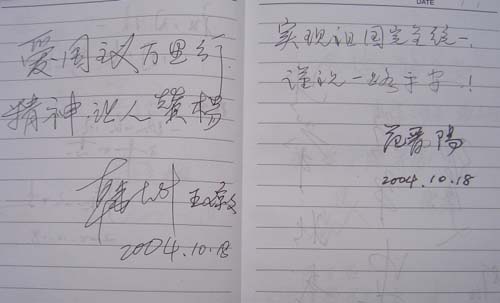 爱国主义万里行
精神让人赞扬
韩
2004.10.18
DATE
实现祖国完全统一
谨祝一路平安!
范晋阳
2004.10.18